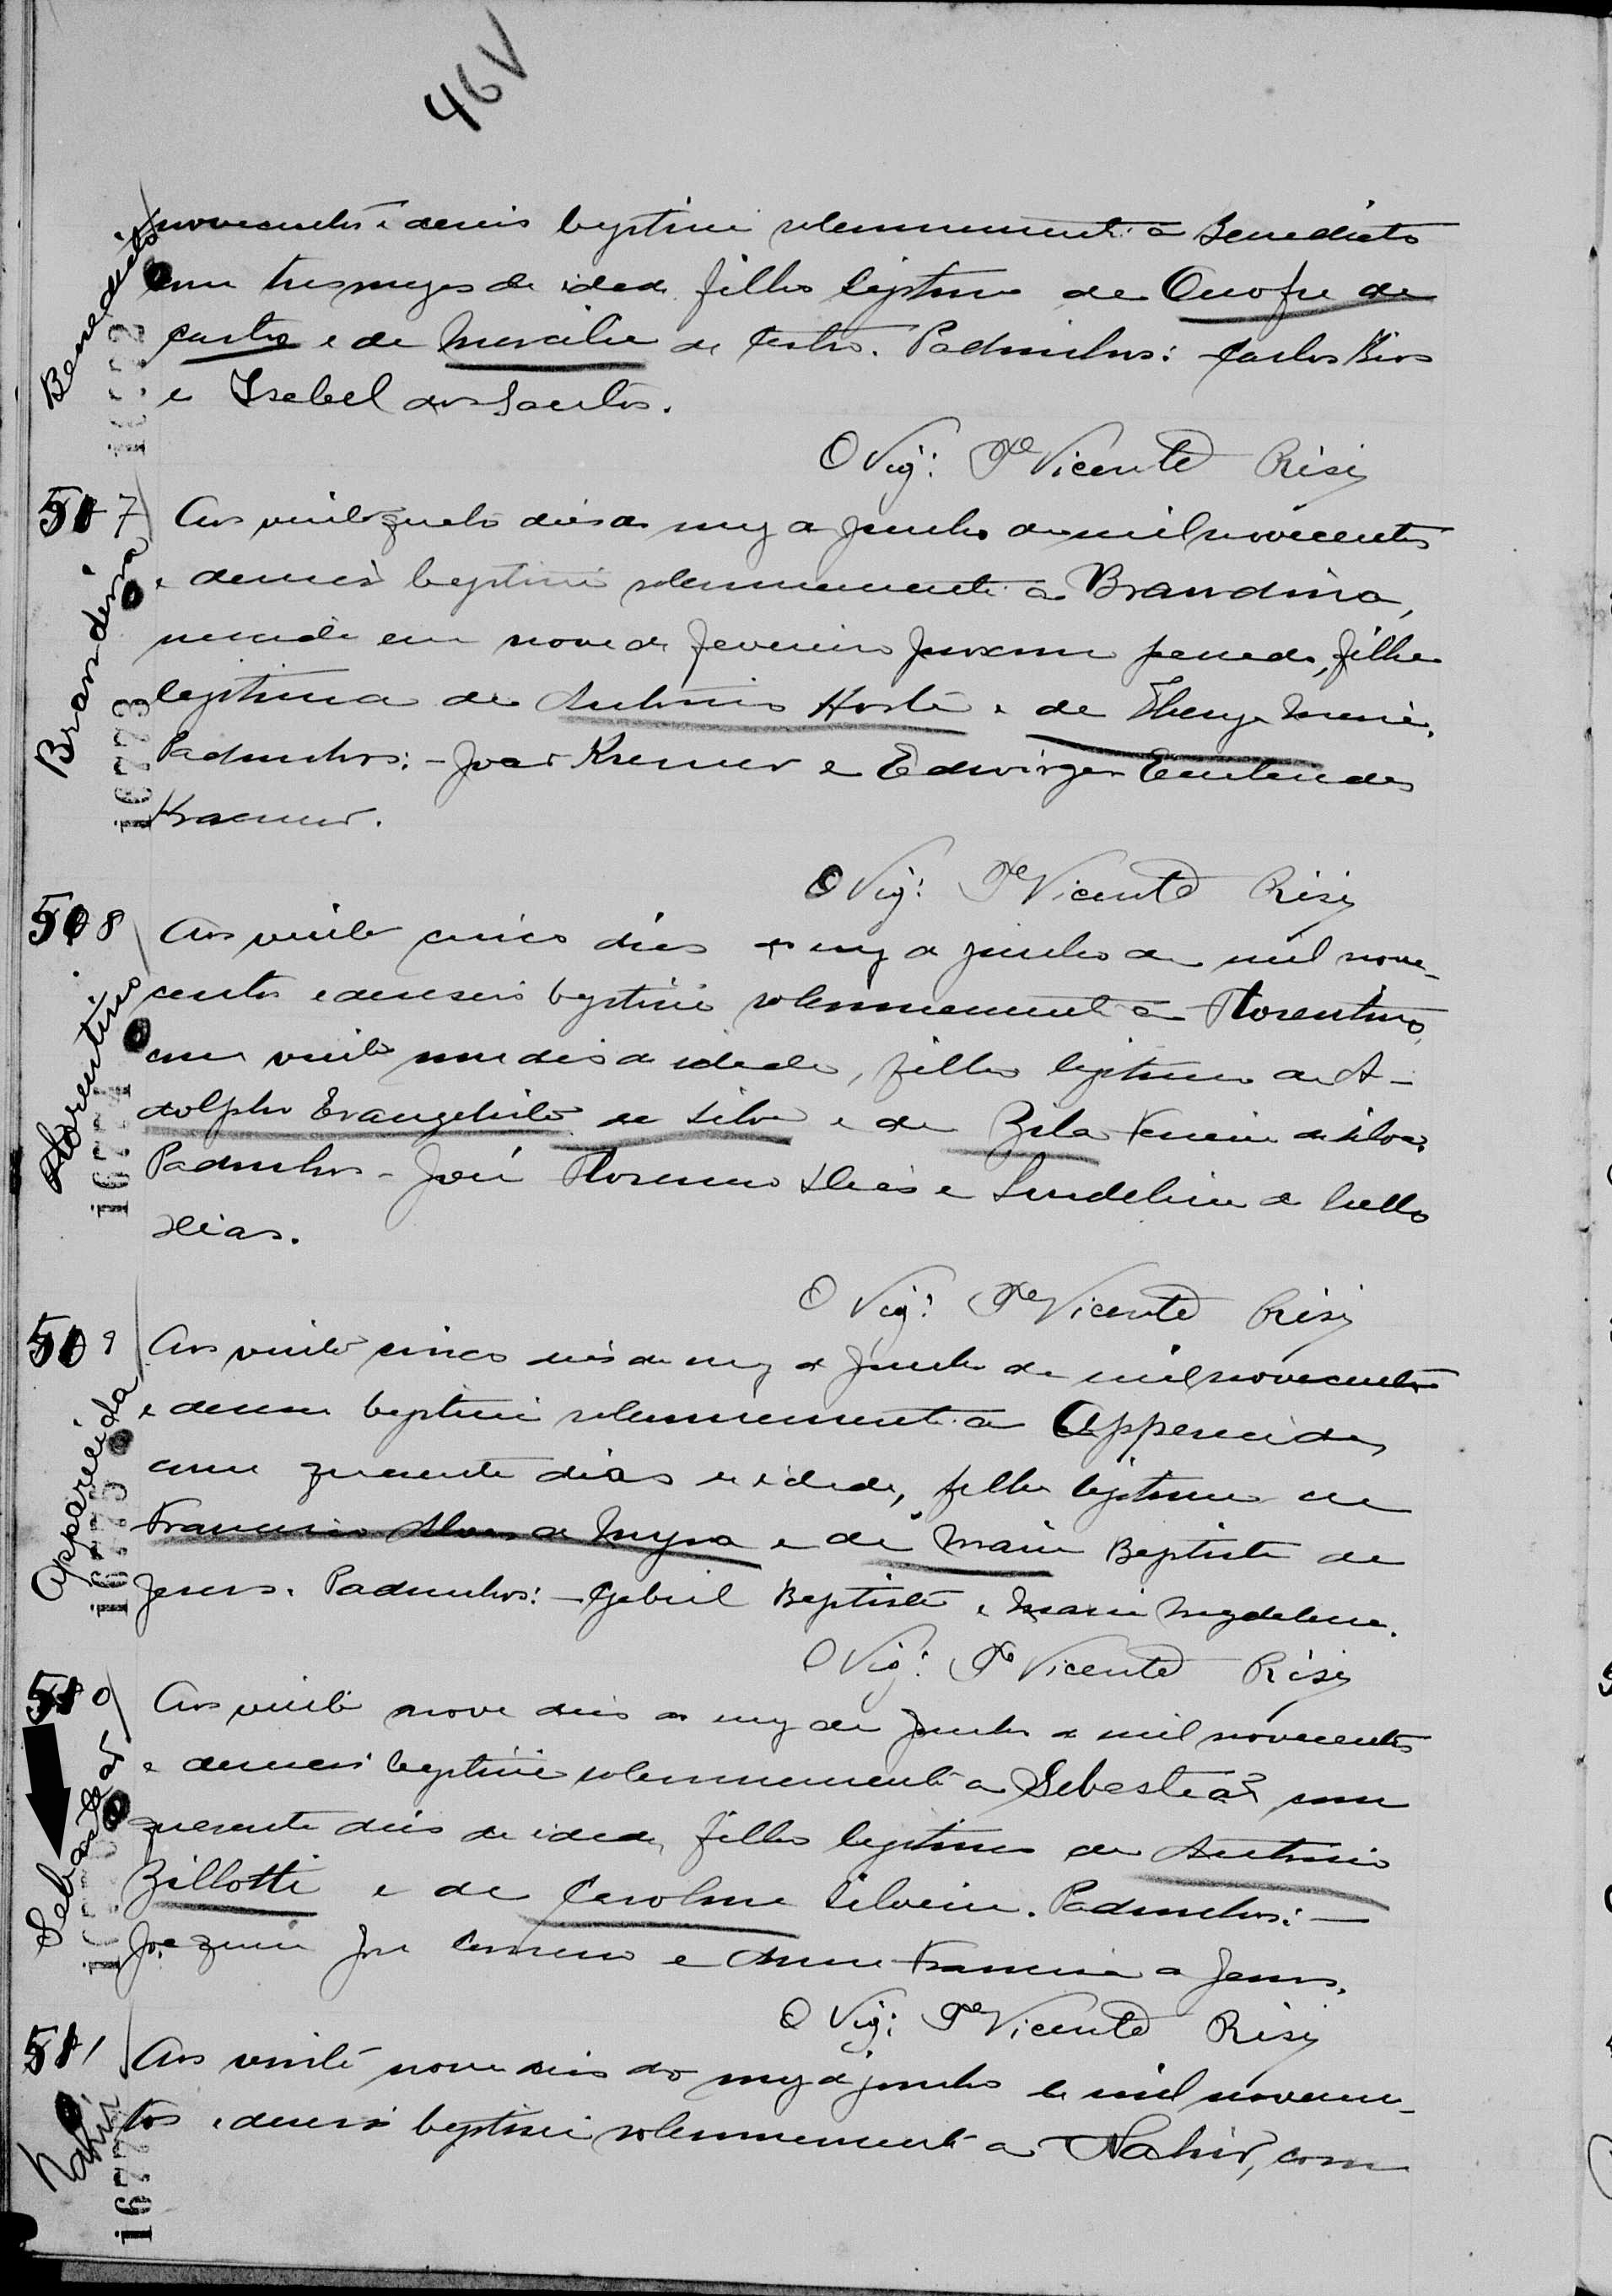 46V
Benedicto
novecentos e deseis baptisei solemnemente a Benedicto
com tres mezes de idade filho legitimo de Onofre de
Castro e de Marcilia de Castro. Padrinhos: Carlos
e Izabel dos Santos.
O Vig: Pe Vicente Risi
507
Brandina
16773
Aos vinte quatro dias do mez de Junho de mil novecentos
e deseseis baptisei solemnemente a Brandina,
nascida em nove de Fevereiro proximo passado, filha
legitima de Antonio Horte e de Maria.
Padrinhos: - João Kremer e Edwirges
Kraemer.
O Vig: Pe Vicente Risi
508
Florentino
16774
Aos vinte cinco dias do mez de Junho de mil nove-
centos e deseseis baptisei solemnemente a Florentino,
com vinte um dias de idade, filho legitimo de A-
dolpho Evangelista da Silva e de Zila Ferreira da Silva.
Padrinhos - José Florencio Dias e Lindolina de Mello
Dias.
O Vig: Pe Vicente Risi
509
Apparecida
16775
Aos vinte cinco dias do mez de Junho de mil novecentos
e deseseis baptisei solemnemente a Apparecida,
com quarenta dias de idade, filha legitima de
Francisco Alves de e de Maria Baptista de
Jesus. Padrinhos: - Gabriel Baptista e Maria Magdalena.
O Vig: Pe Vicente Risi
580
Sebastião
Aos vinte nove dias do mez de Junho de mil novecentos
e deseseis baptisei solemnemente a Sebastião com
quarenta dias de idade, filho legitimo de Antonio
Zillotti e de Carolina Silveira. Padrinhos: -
Joaquim José e Anna Francisca de Jesus.
O Vig: Pe Vicente Risi
581
Nahir
1677
Aos vinte nove dias do mez de Junho de mil novecen-
tos e deseseis baptisei solemnemente a Nahir, com